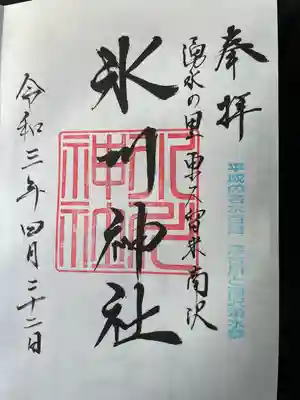 奉拝
湧水の里 東久留米南沢
氷川神社
氷川神社
令和三年四月二十二日